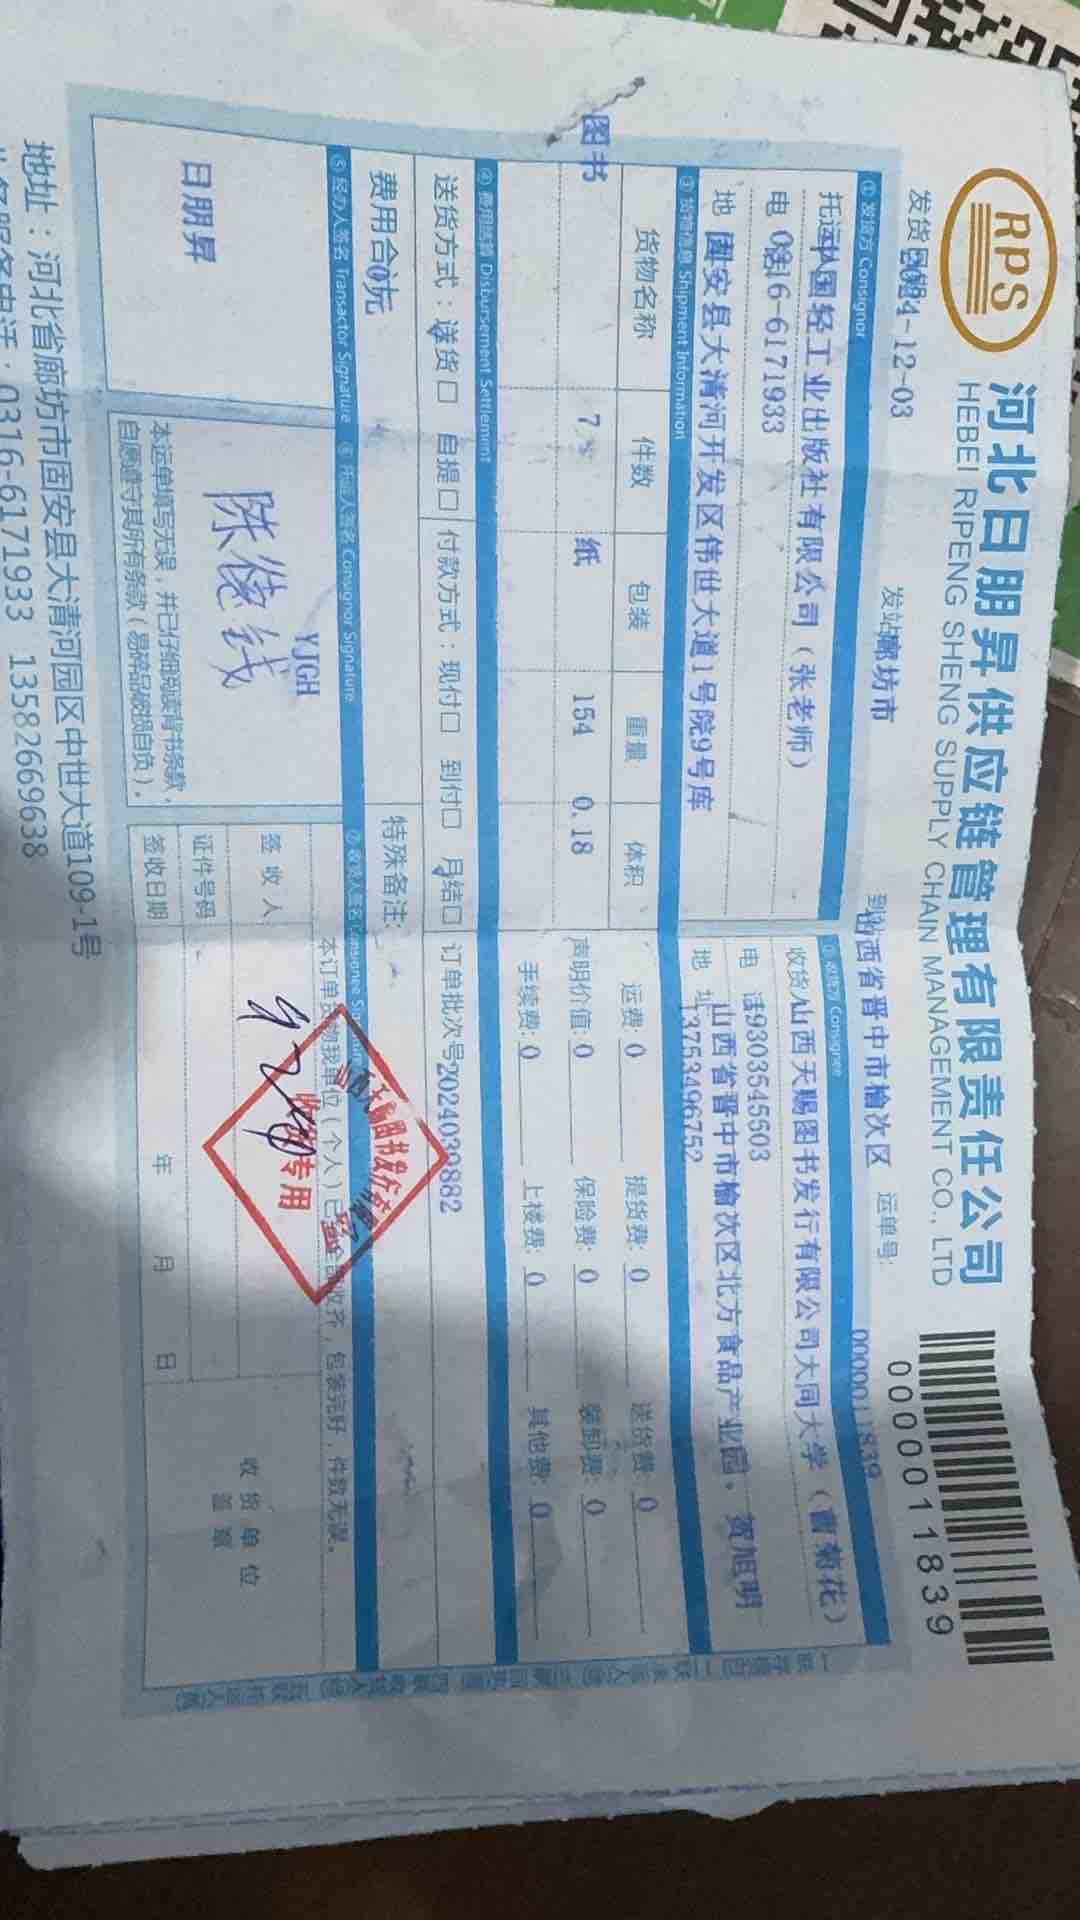 RPS
河北日朋昇供应链管理有限责任公司
HEBEI RIPENG SHENG SUPPLY CHAIN MANAGEMENT CO., LTD
0000011839
发货日期 2024-12-03
发站 廊坊市
到站 山西省晋中市榆次区
运单号: 0000011839
① 发货方 Consignor
托运人 中国轻工业出版社有限公司（张老师）
电 话 0316-6171933
地 固安县大清河开发区伟世大道1号院9号库
② 收货方 Consignee
收货人 山西天赐图书发行有限公司大同大学（曹菊花）
电 话 9303545503
地 址 山西省晋中市榆次区北方食品产业园。贺旭明
13753496752
③ 货物信息 Shipment Information
货物名称 件数 包装 重量 体积
图书 7 纸 154 0.18
运费: 0 提货费: 0 送货费: 0
声明价值: 0 保险费: 0 装卸费: 0
手续费: 0 上楼费: 0 其他费: 0
④ 费用结算 Disbursement Settlement
送货方式：送货□ 自提□ 付款方式：现付□ 到付□ 月结□ 订单批次号
费用合计 0元
特殊备注:
⑤ 经办人签名 Transactor Signature
⑥ 托运人签名 Consignor Signature
⑦ 收货人签名 Consignee
日朋昇
YJGH
本运单填写无误，并已仔细阅读背书条款，
自愿遵守其所有条款（易碎品破损自负）。
本订单货物我单位（个人）已全部收齐，包装完好，件数无误。
签 收 人
证件号码
签收日期 年 月 日
收 货 单 位
盖 章
专用
地址：河北省廊坊市固安县大清河园区中世大道109-1号
业务服务电话：0316-6171933 13582669638